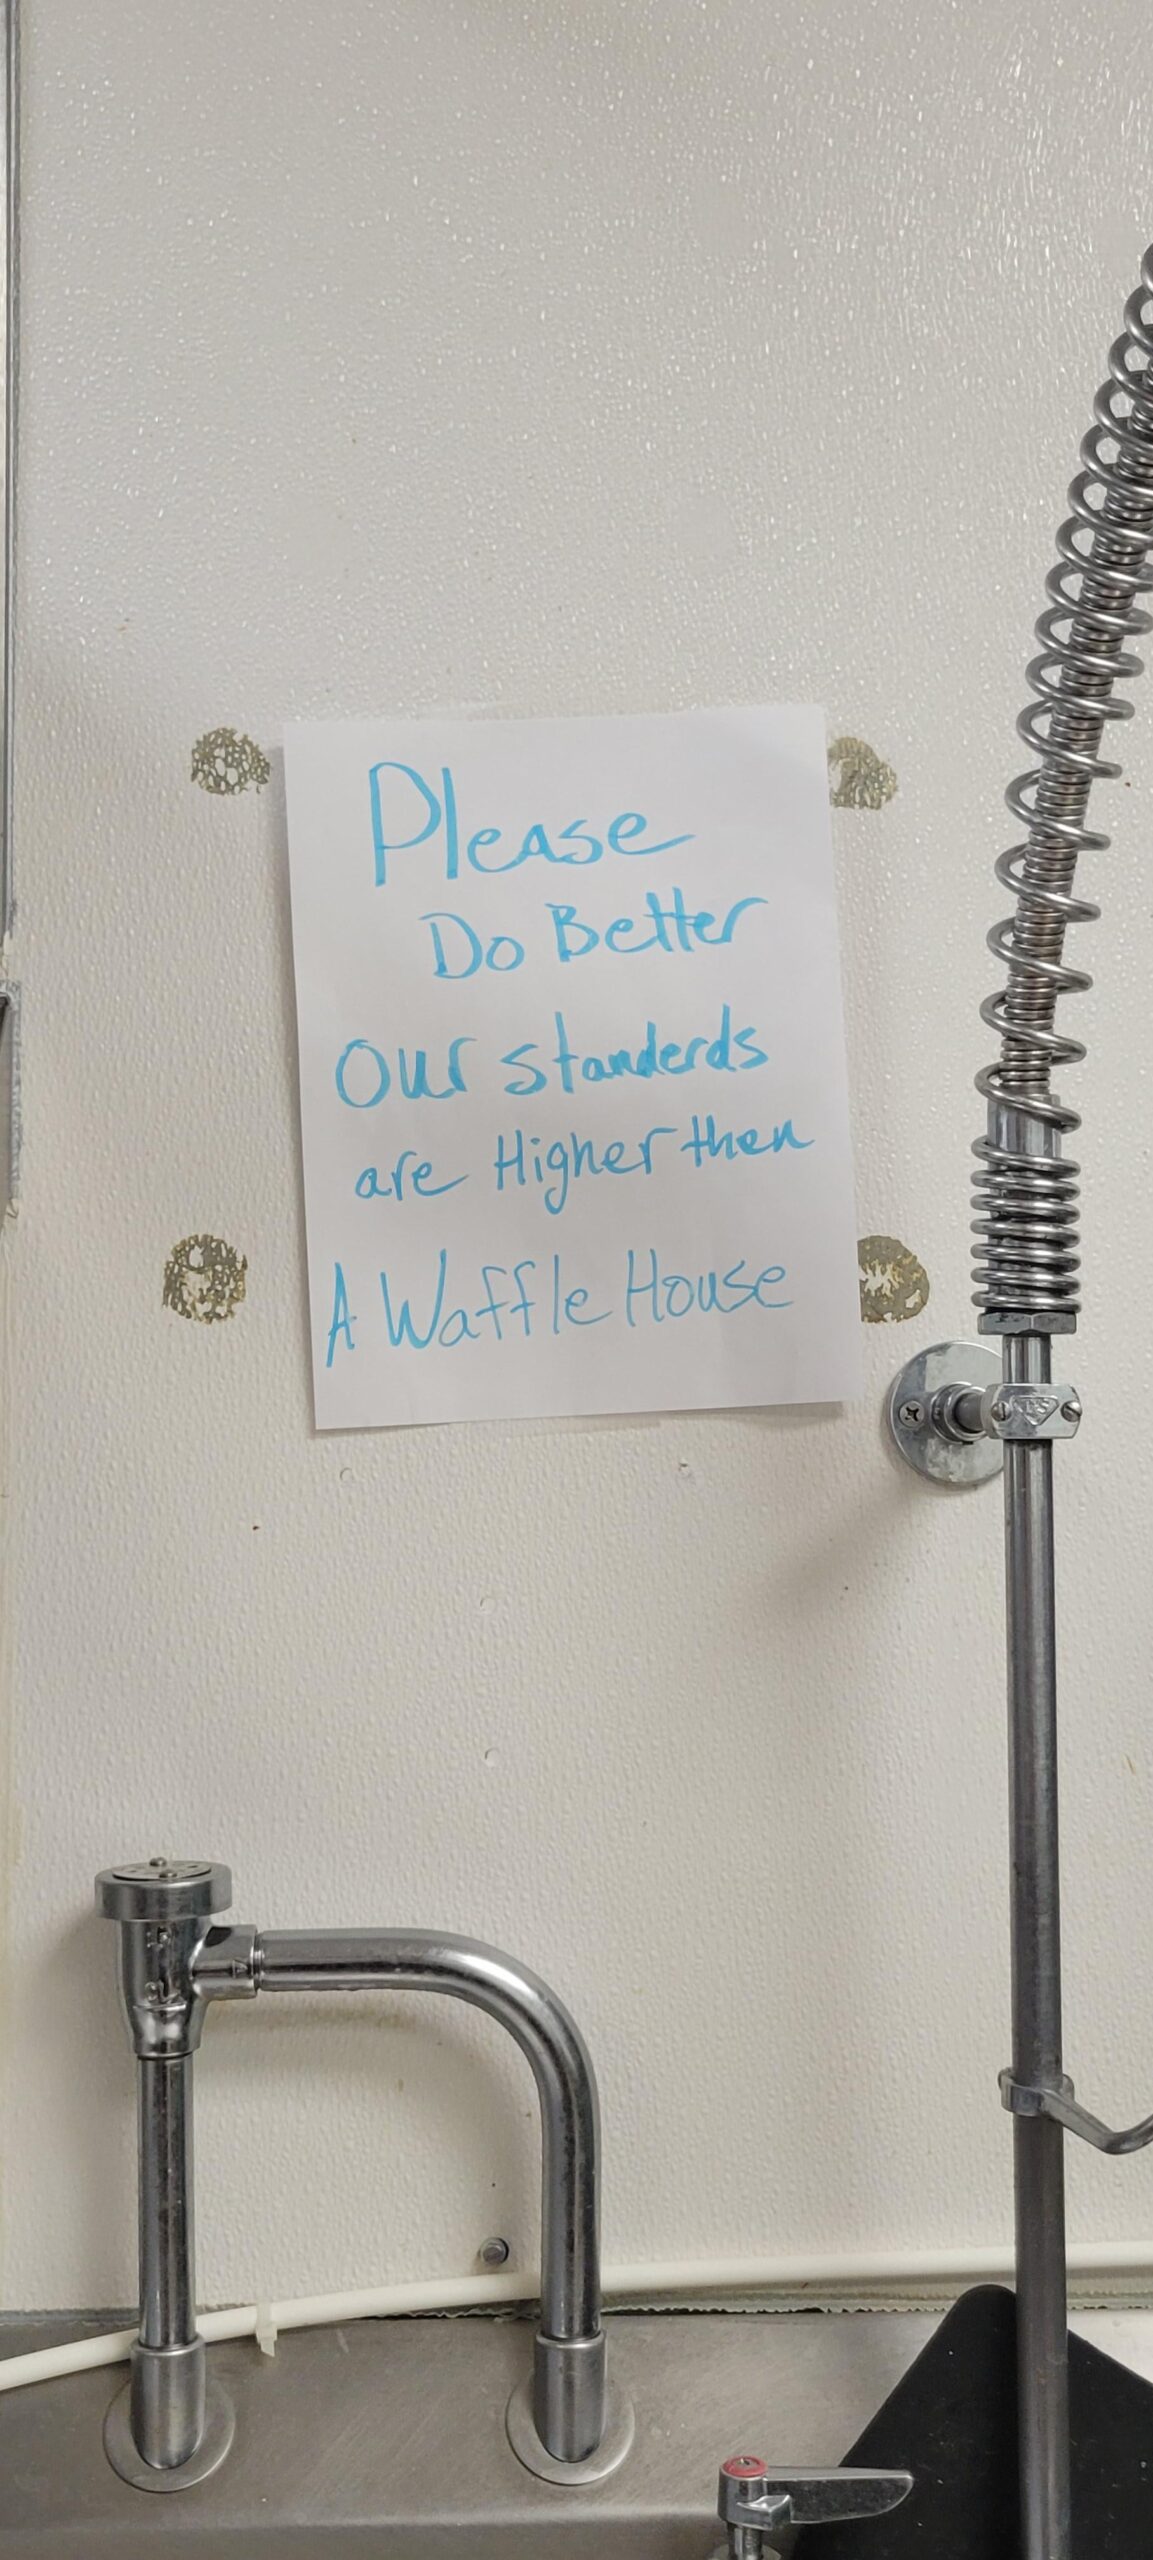 Please
Do Better
Our standerds
are Higher then
A Waffle House